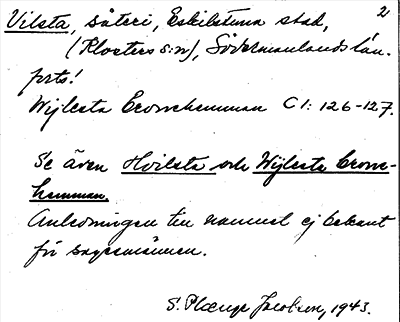 Vilsta, säteri, Eskilstuna stad, 2
(Klosters s:n), Södermanlands län.
forts!
Wijlesta Cronehemman C 1: 126-127.
Se även Hvilsta och Wijlesta Crone-
hemman.
Anledningen till namnet ej bekant
för sagesmännen.
S. Plænge Jacobson, 1943.